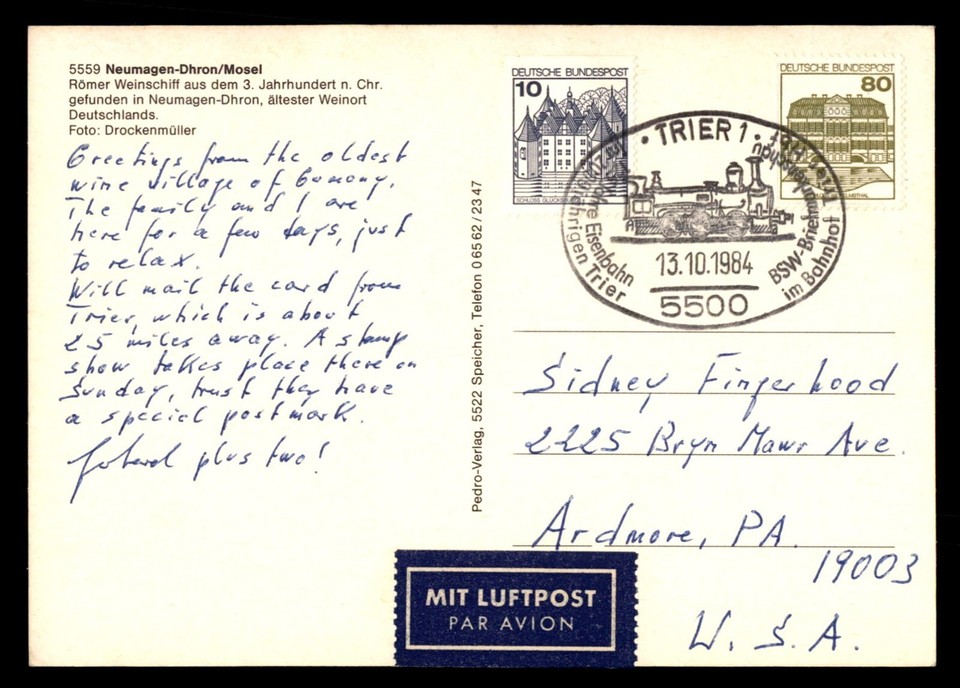 5559 Neumagen-Dhron/Mosel
Römer Weinschiff aus dem 3. Jahrhundert n. Chr.
gefunden in Neumagen-Dhron, ältester Weinort
Deutschlands.
Foto: Drockenmüller
Greetings from the oldest
wine village of Germany.
The family and I are
here for a few days, just
to relax.
Will mail the card from
Trier, which is about
25 miles away. A stamp
show takes place there on
Sunday, trust they have
a special postmark.
plus two!
Pedro-Verlag, 5522 Speicher, Telefon 0 65 62 / 23 47
DEUTSCHE BUNDESPOST
10
DEUTSCHE BUNDESPOST
80
TRIER 1
Eisenbahn
jährigen Trier
BSW-Brief
im Bahnhof
13.10.1984
5500
Sidney Fingerhood
2225 Bryn Mawr Ave.
Ardmore, PA.
19003
U.S.A.
MIT LUFTPOST
PAR AVION